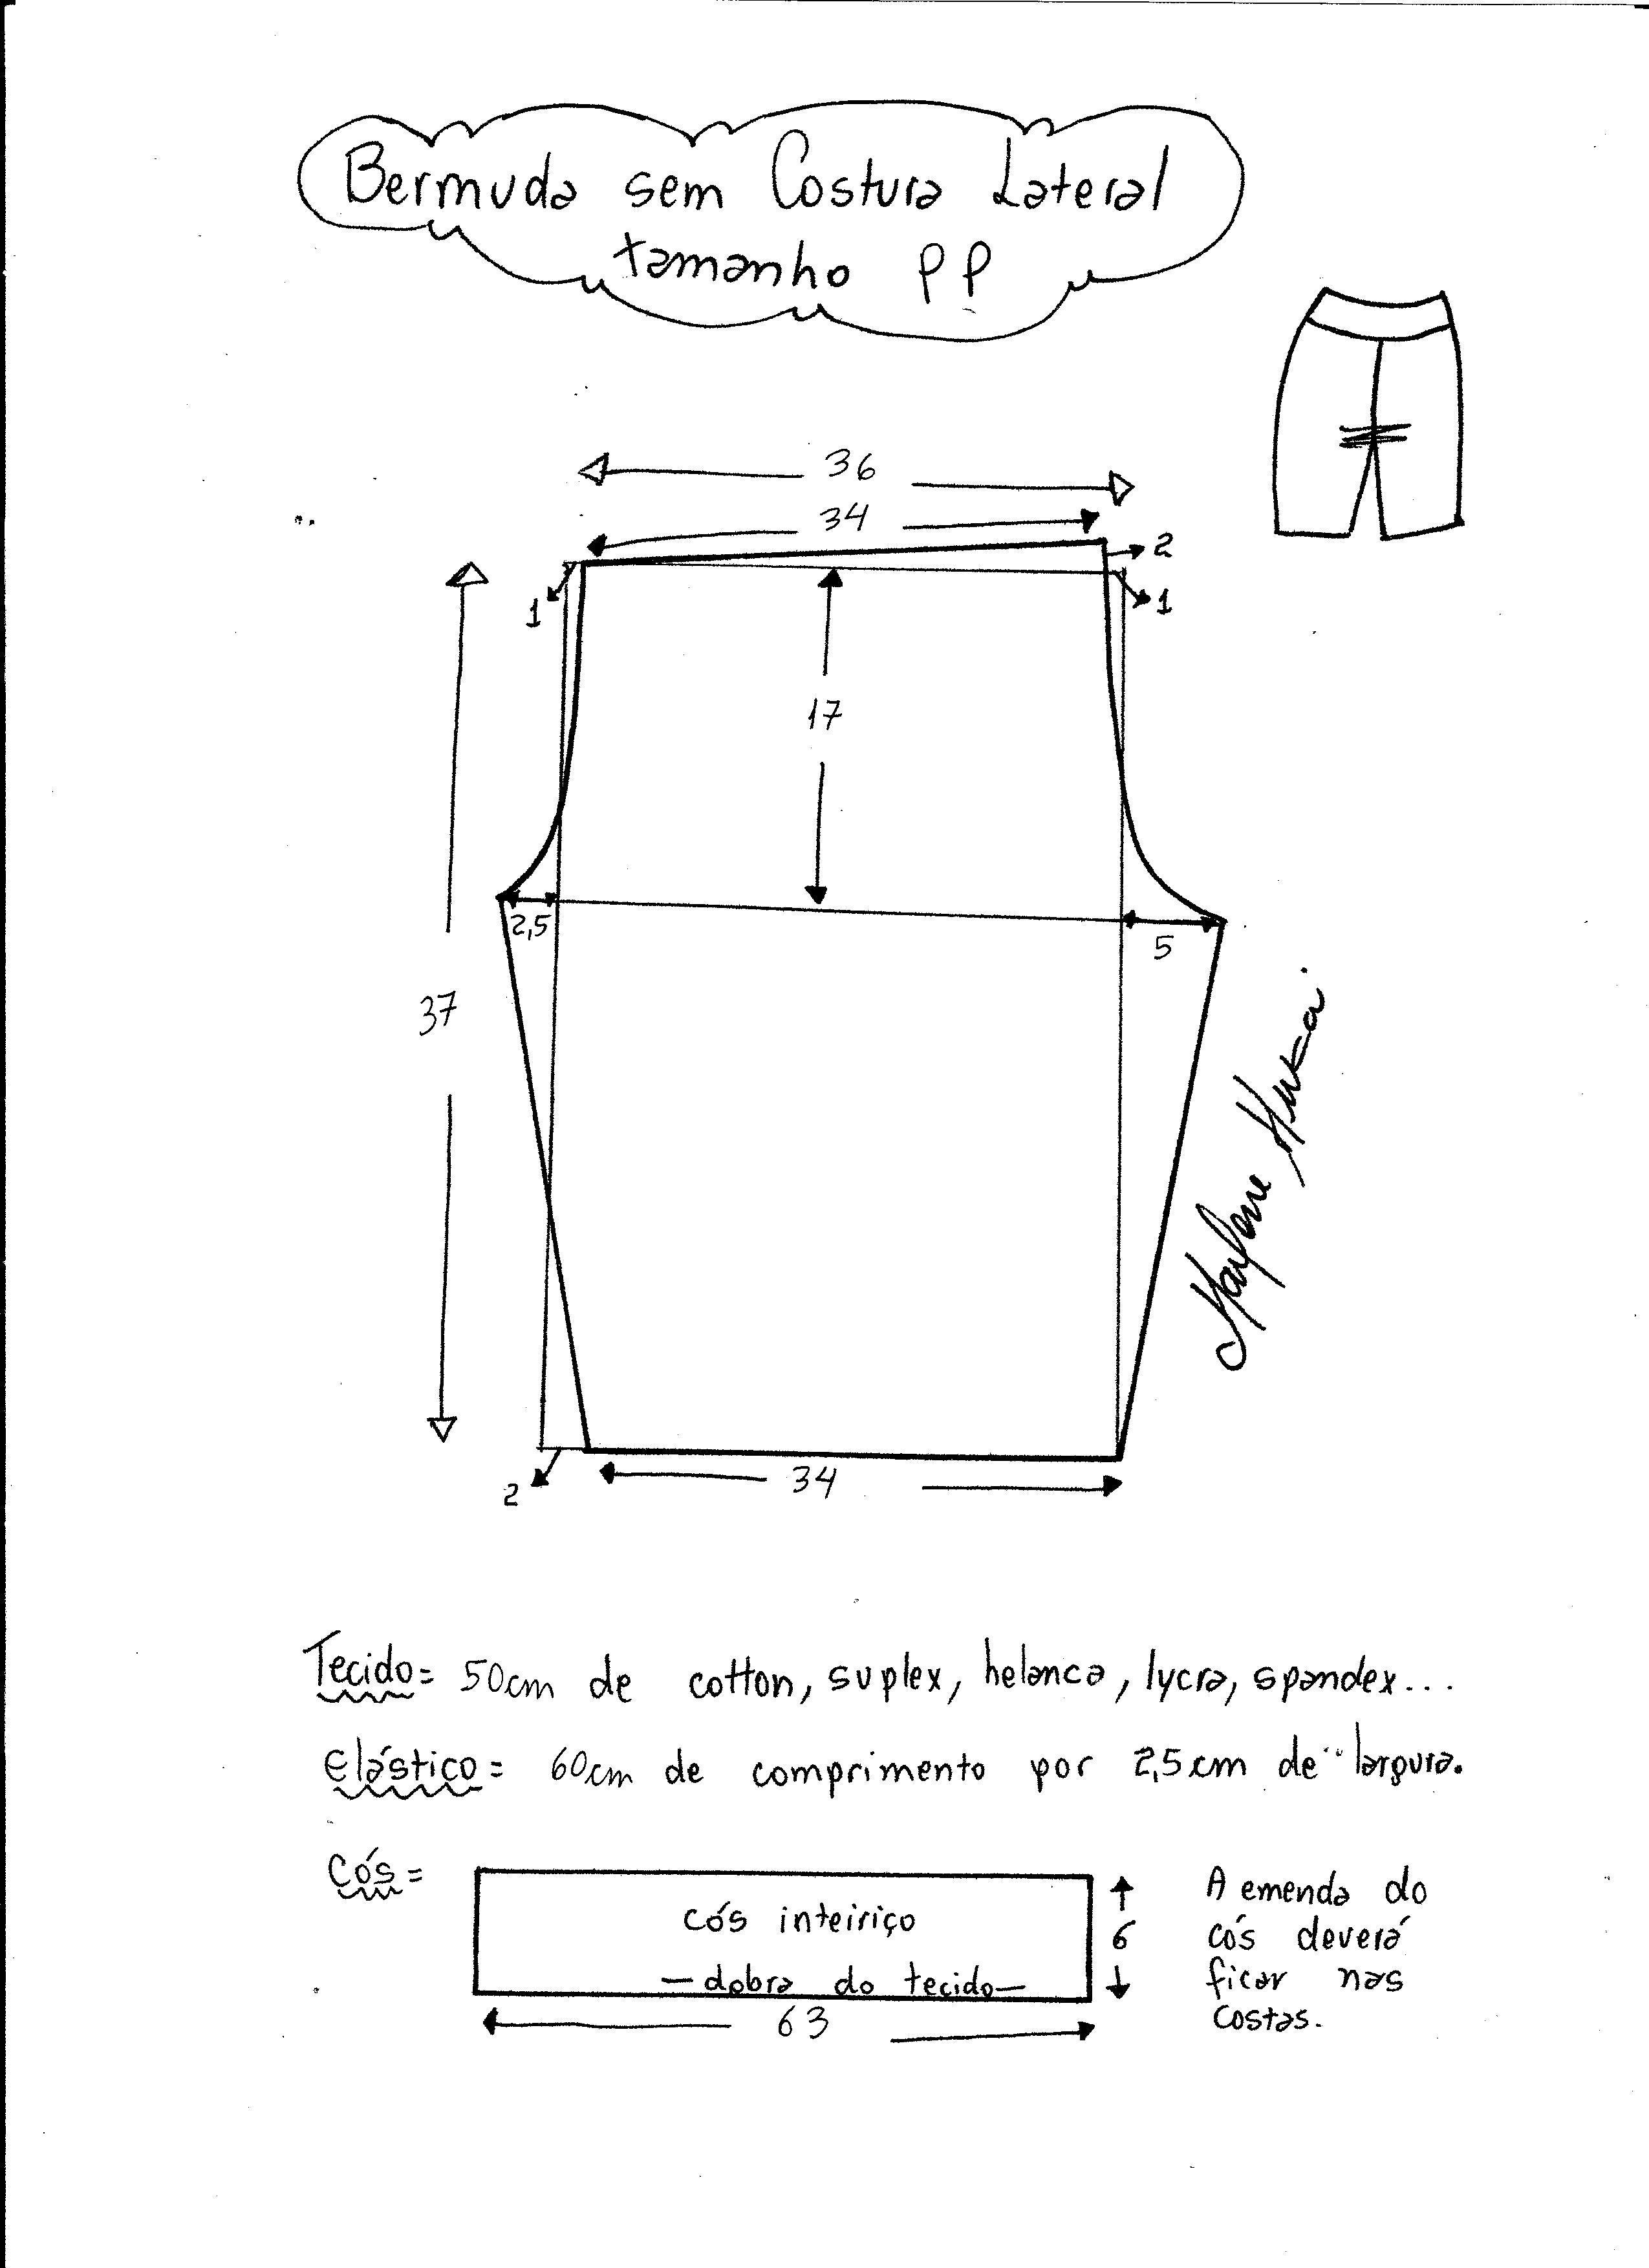 Bermuda sem Costura Lateral
tamanho PP
36
34
2
1
1
17
2,5
5
37
2
34
Tecido= 50cm de cotton, suplex, helanca, lycra, spandex...
Elástico= 60cm de comprimento por 2,5cm de largura.
Cós=
cós inteiriço
—dobra do tecido—
63
6
A emenda do
cós deverá
ficar nas
costas.